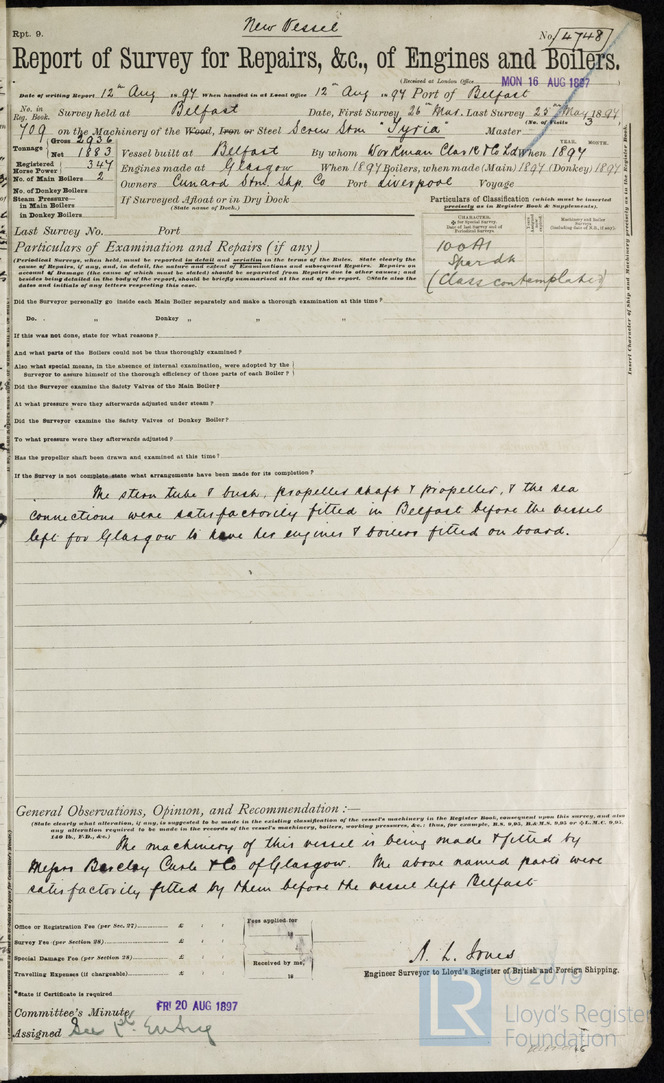 New Vessel
Rpt. 9.
No. 4748
Report of Survey for Repairs, &c., of Engines and Boilers.
(Received at London Office MON 16 AUG 1897)
Date of writing Report 12th Aug 1897 When handed in at Local Office 12th Aug 1897 Port of Belfast
No. in Reg. Book. Survey held at Belfast Date, First Survey 26th Mar. Last Survey 25th May 1897
(No. of Visits 3)
709 on the Machinery of the Wood, Iron or Steel Screw Stmr "Tyria" Master
Tonnage Gross 2936
Net 1883
Vessel built at Belfast By whom Workman Clark & Co Ltd When 1897
YEAR. MONTH.
Registered Horse Power 347
Engines made at Glasgow When 1897 Boilers, when made (Main) 1897 (Donkey) 1897
No. of Main Boilers 2
No. of Donkey Boilers
Owners Cunard Stm. Shp. Co Port Liverpool Voyage
Steam Pressure—
in Main Boilers
in Donkey Boilers
If Surveyed Afloat or in Dry Dock
(State name of Dock.)
Particulars of Classification (which must be inserted
precisely as in Register Book & Supplements).
Last Survey No. Port
CHARACTER.
100A1
Spar dk
(Class contemplated)
Particulars of Examination and Repairs (if any)
(Periodical Surveys, when held, must be reported in detail and seriatim in the terms of the Rules. State clearly the
cause of Repairs, if any, and, in detail, the nature and extent of Examinations and subsequent Repairs. Repairs on
account of Damage (the cause of which must be stated) should be separated from Repairs due to other causes; and
besides being detailed in the body of the report, should be briefly summarised at the end of the report. State also the
dates and initials of any letters respecting this case.
Did the Surveyor personally go inside each Main Boiler separately and make a thorough examination at this time?
Do. „ Donkey „ „ „
If this was not done, state for what reasons?
And what parts of the Boilers could not be thus thoroughly examined?
Also what special means, in the absence of internal examination, were adopted by the
Surveyor to assure himself of the thorough efficiency of those parts of each Boiler?
Did the Surveyor examine the Safety Valves of the Main Boiler?
At what pressure were they afterwards adjusted under steam?
Did the Surveyor examine the Safety Valves of Donkey Boiler?
To what pressure were they afterwards adjusted?
Has the propeller shaft been drawn and examined at this time?
If the Survey is not complete state what arrangements have been made for its completion?
The stern tube & bush, propeller shaft & propeller, & the sea
connections were satisfactorily fitted in Belfast before the vessel
left for Glasgow to have her engines & boilers fitted on board.
General Observations, Opinion, and Recommendation:—
(State clearly what alteration, if any, is suggested to be made in the existing classification of the vessel's machinery in the Register Book, consequent upon this survey, and also
any alteration required to be made in the records of the vessel's machinery, boilers, working pressures, &c.; thus, for example, B.S. 9,95, B.&M.S. 9,95 or L.M.C. 9,95,
140 lb., F.D., &c.)
The machinery of this vessel is being made & fitted by
Messrs Barclay Curle & Co of Glasgow. The above named parts were
satisfactorily fitted by them before the vessel left Belfast
Office or Registration Fee (per Sec. 27) £
Survey Fee (per Section 28) £
Special Damage Fee (per Section 28) £
Travelling Expenses (if chargeable) £
Fees applied for
18
Received by me,
18
A. L. Jones
Engineer Surveyor to Lloyd's Register of British and Foreign Shipping.
*State if Certificate is required
Committee's Minute FRI 20 AUG 1897
Assigned See
© 2019
LR
Lloyd's Register
Foundation
Insert Character of Ship and Machinery precisely as in the Register Book.